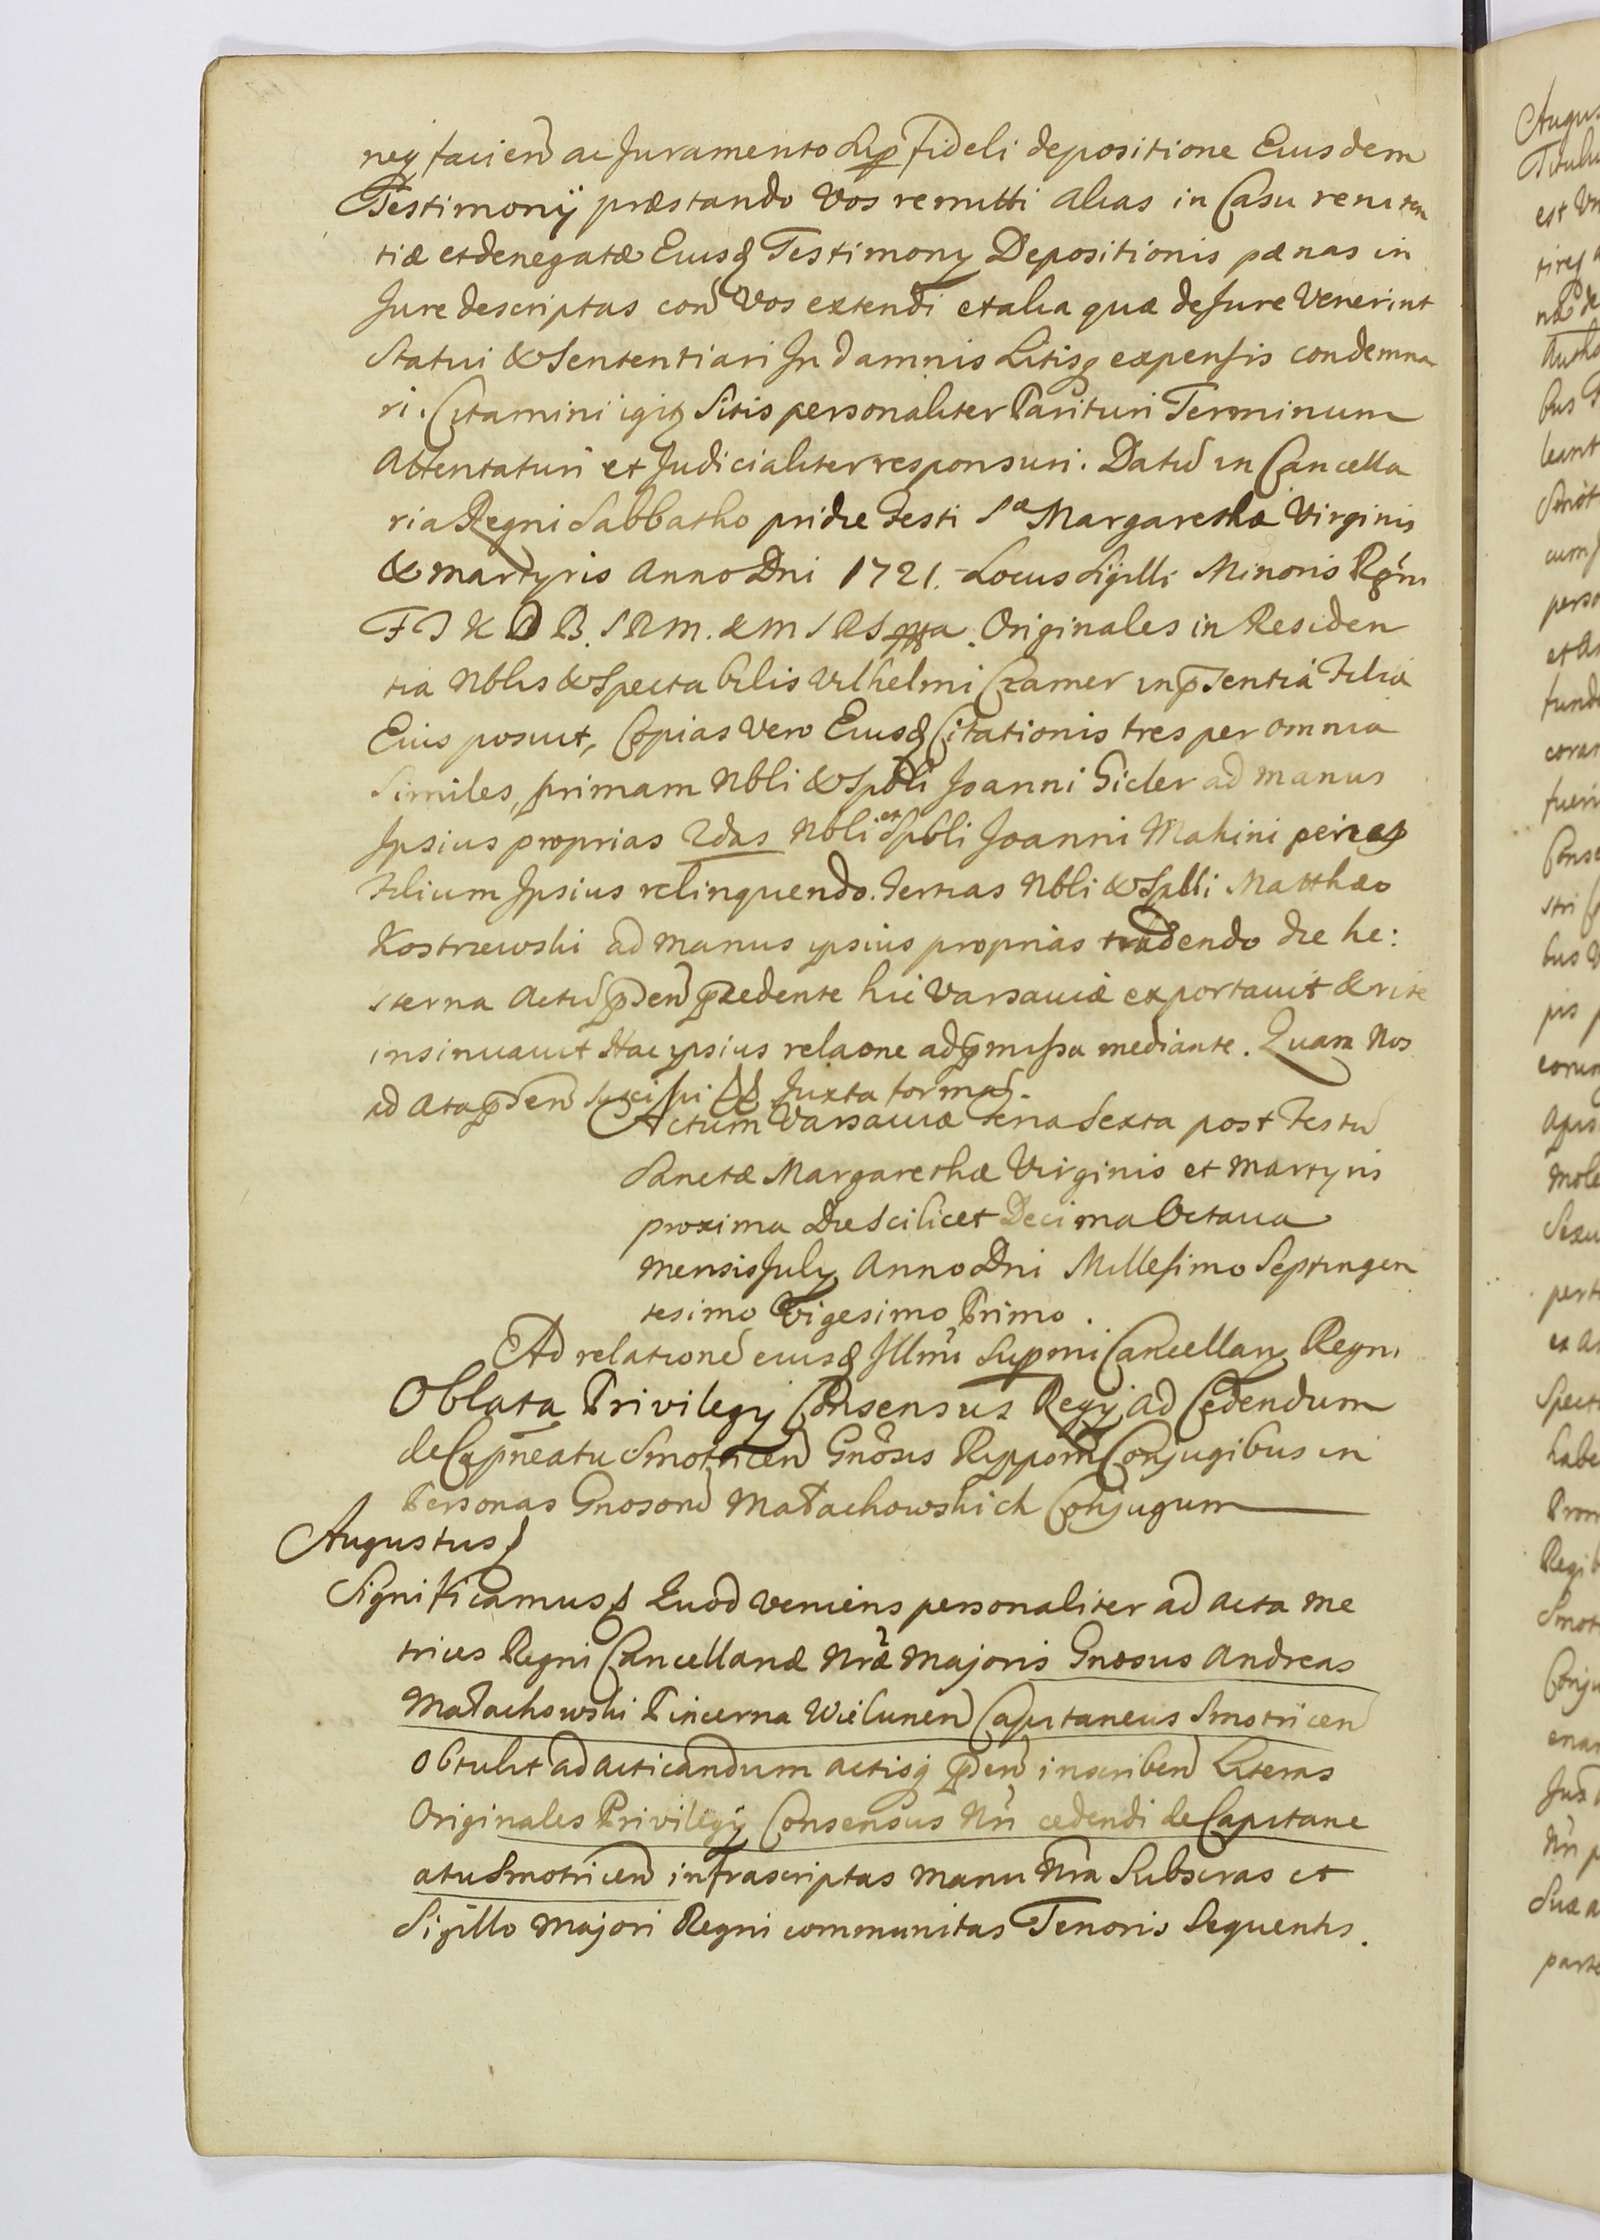 neg facien ac Juramento Sup fideli depositione Eiusdem
Testimonij præstando Vos remitti alias in Casu reniten
tiæ et denegatæ Eiusq Testimony Depositionis pænas in
Jure descriptas con Vos extendi et alia quæ de Jure Venerint
Statui & Sententiari In damnis Litisq expensis condemna
ri. Citamini igitr Sitis personaliter Parituri Terminum
Attentaturi et Judicialiter responsuri. Datu in Cancella
ria Regni Sabbatho pridie Festi Sæ Margarethæ Virginis
& Martyris Anno Dni 1721. Locus Sigilli Minoris Regni
F J K D B. S R M. & M S R S mppa. Originales in Residen
tia Nblis & Spectabilis Vilhelmi Cramer in pntentiâ Filiæ
Eius posuit, Copias Vero Eiusq Citationis tres per omnia
Similes, primam Nbli & Spbli Joanni Gidler ad manus
Ipsius proprias 2das Nbli et Spbli Joanni Mahini
Filium Ipsius relinquendo. Tertias Nbli & Spbli Matthæo
Kostrzewski ad manus ipsius proprias tradendo die he:
sterna Actu pnden præcedente hic Varsaviæ exportavit & rite
insinuavit Hac ipsius relaone ad pmissa mediante. Quam Nos
ad Ata pnden Suscipi Juxta forma.
Actum Varsaviæ Feria Sexta post Festu
Sanctæ Margarethæ Virginis et Martyris
proxima Die Scilicet Decima Octava
Mensis July Anno Dni Millesimo Septingen
tesimo Vigesimo Primo.
Ad relatione eiusq Illmi Supmi Cancellary Regni
Oblata Privilegij Consensus Regij ad Cedendum
de Capneatu Smotricen Gnosis Conjugibus in
Personas Gnosoru Małachowskich Conjugum
Augustus
Significamus Quod veniens personaliter ad Acta Me
trices Regni Cancellariæ Nræ Majoris Gnosus Andreas
Małachowski Pincerna Wielunen Capitaneus Smotricen
Obtulit ad acticandum actisq pnden inscriben Literas
Originales Privilegij Consensus Nri cedendi de Capitane
atu Smotricen infrascriptas manu Nra Subscras et
Sigillo Majori Regni communitas Tenoris Sequentis.